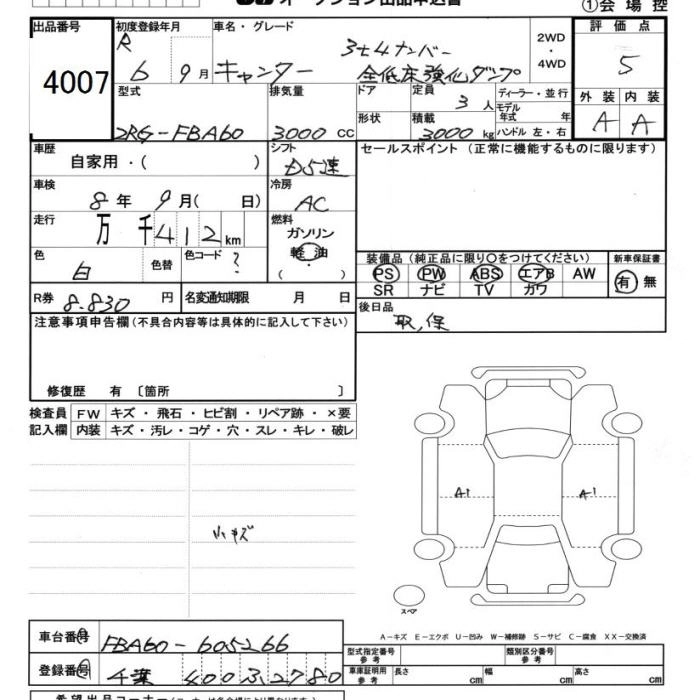 ①会場控
出品番号
4007
初度登録年月
R 6 9月
車名・グレード
3t4ナンバー
キャンター 全低床強化ダンプ
2WD
・
4WD
評価点
5
型式
2RG-FBA60
排気量
3000cc
ドア
定員
3人
ディーラー・並行
モデル年式 年
形状
積載
3000kg
ハンドル 左・右
外装 内装
A A
車歴
自家用・( )
シフト
D5速
セールスポイント(正常に機能するものに限ります)
車検
8年 9月( 日)
冷房
AC
走行
万 千412km
燃料
ガソリン
軽油
( ・ )
色
白
色替
色コード
?
装備品(純正品に限り○をつけてください)
PS PW ABS エアB AW
SR ナビ TV カワ
新車保証書
有 無
R券 8.830円
名変通知期限 月 日
後日品
取,保
注意事項申告欄(不具合内容等は具体的に記入して下さい)
修復歴 有 〔箇所 〕
検査員 FW キズ・飛石・ヒビ割・リペア跡・×要
記入欄 内装 キズ・汚レ・コゲ・穴・スレ・キレ・破レ
小キズ
A1 A1
スペア
A-キズ E-エクボ U-凹み W-補修跡 S-サビ C-腐食 XX-交換済
車台番号
FBA60-605266
登録番号
千葉 400 ふ2780
型式指定番号
参考
類別区分番号
参考
車庫証明用
参考
長さ cm 幅 cm 高さ cm